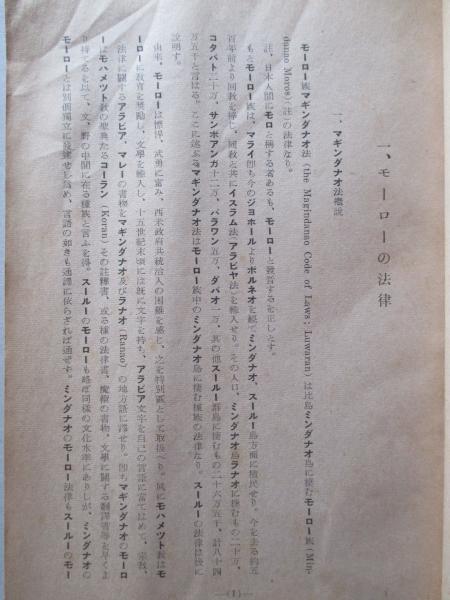 一、モーローの法律
一、マギンダナオ法槪說
モーロー族マギンダナオ法 (the Magindanao Code of Laws; Luwaran) は比島ミンダナオ島に棲むモーロー族 (Min-
danao Moros) (註) の法律なり。
註、日本人間にモロと稱する者あるも、モーローと發音するを正しとす。
もとモーロー族は、マライ卽ち今のジョホールよりボルネオを經てミンダナオ、スールー島方面に植民せり。今を去る約五
百年前より回敎を奉じ、回敎と共にイスラム法(アラビヤ法)を輸入せり。その人口、ミンダナオ島ラナオに棲むもの二十萬、
コタバト二十萬、サンボアンガ十二萬、パラワン五萬、ダバオ一萬、其の他スールー群島に棲むもの二十六萬五千、計八十四
萬五千と言はる。ここに述ぶるマギンダナオ法はモーロー族中のミンダナオ島に棲む種族の法律なり。スールーの法律は後に
說明す。
由來、モーローは慓悍、武勇に富み、西米政府共統治上の困難を感じ、之を特別區として取扱へり。夙にモハメット敎はモ
ーローに敎育を獎勵し、文學を輸入し、十五世紀末頃には旣に文字を持ち、アラビア文字を自己の言語に當てはめて、宗敎、
法律に關するアラビア、マレーの書物をマギンダナオ及びラナオ (Ranao) の地方語に譯せり。卽ちマギンダナオのモーロ
ーはモハメット敎の聖典たるコーラン (Koran) その註釋書、或る種の法律書、魔術の書物、文學に關する飜譯書等を早くよ
り持てるを以て、文、野の中間に在る種族と言ふを得。スールーのモーローも略ぼ同樣の文化水準にありしが、ミンダナオの
モーローとは別個獨立に發達せし爲め、言語の如きも通譯に依らざれば通ぜず。ミンダナオのモーロー法律もスールーのモー
—(1)—